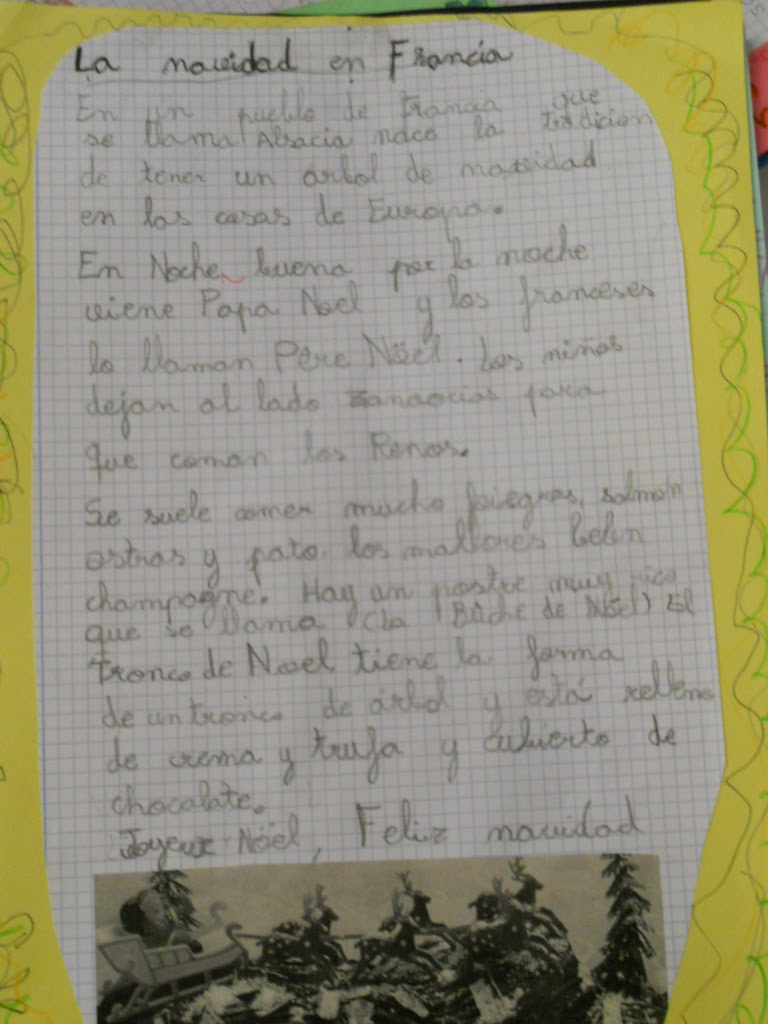 La navidad en Francia
En un pueblo de Francia que
se llama Alsacia naco la tradicion
de tener un árbol de navidad
en las casas de Europa.
En Noche buena por la noche
viene Papa Noel y los franceses
lo llaman Père Nöel. Los niños
dejan al lado zanaorias para
que coman los Renos.
Se suele comer mucho foiegras, salmón
ostras y pato. los mallores beben
champagne. Hay un postre muy rico
que se llama (la Bûche de Nöel) El
tronco de Noel tiene la forma
de un tronco de árbol y está relleno
de crema y trufa y cubierto de
chocalate.
Joyeux Nöel, Feliz navidad